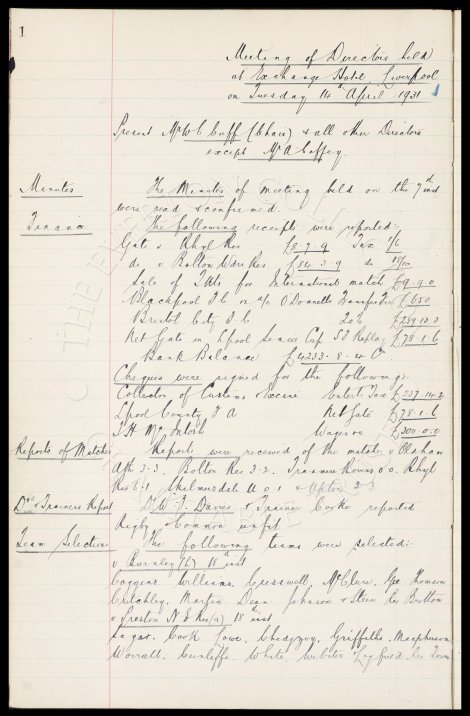 1
Meeting of Directors held
at Exchange Hotel, Liverpool
on Tuesday 14th April 1931
Present Mr W C Cuff (Chair) & all other Directors
except Mr A Coffey.
Minutes The Minutes of meeting held on the 7th inst
were read & confirmed
Finance The following receipts were reported:
Gate v Rhyl Res £8.7.9 Tax 7/1
do v Bolton Wdrs Res £84.3.9 do
Sale of Tkts for International match £9.9.0
Blackpool F C on a/c O'Donnells Transfer Fee £650
Bristol City F C £289.13.3
Net Gate in Lpool Senior Cup SF Replay £78.1.6
Bank Balance £4233.8.4 Cr
Cheques were signed for the following:
Collector of Customs Excise Enterts Tax £237.14.2
Lpool County F A Net Gate £78.1.6
T. H. McIntosh Wages &c £300.0.0
Reports of Matches Reports were received of the matches v Oldham
Ath 3.3. Bolton Res 3.2. Tranmere Rovers 0.0. Rhyl
Res 6.1 Skelmersdale U 0.1 & Upton 2.3
Drs & Trainers Report Dr W. J. Davies & Trainer Cooke reported
Rigby & Common unfit
Team Selections The following teams were selected:
v Burnley (h) 18th inst
Coggins, Williams, Cresswell, McClure, Gee Thomson
Critchley, Martin, Dean, Johnson & Stein Res Britton
v Preston N E Res (a) 18th inst
Sagar, Cook Lowe, Chedgzoy, Griffiths, Macpherson
Worrall, Cunliffe, White, Webster &